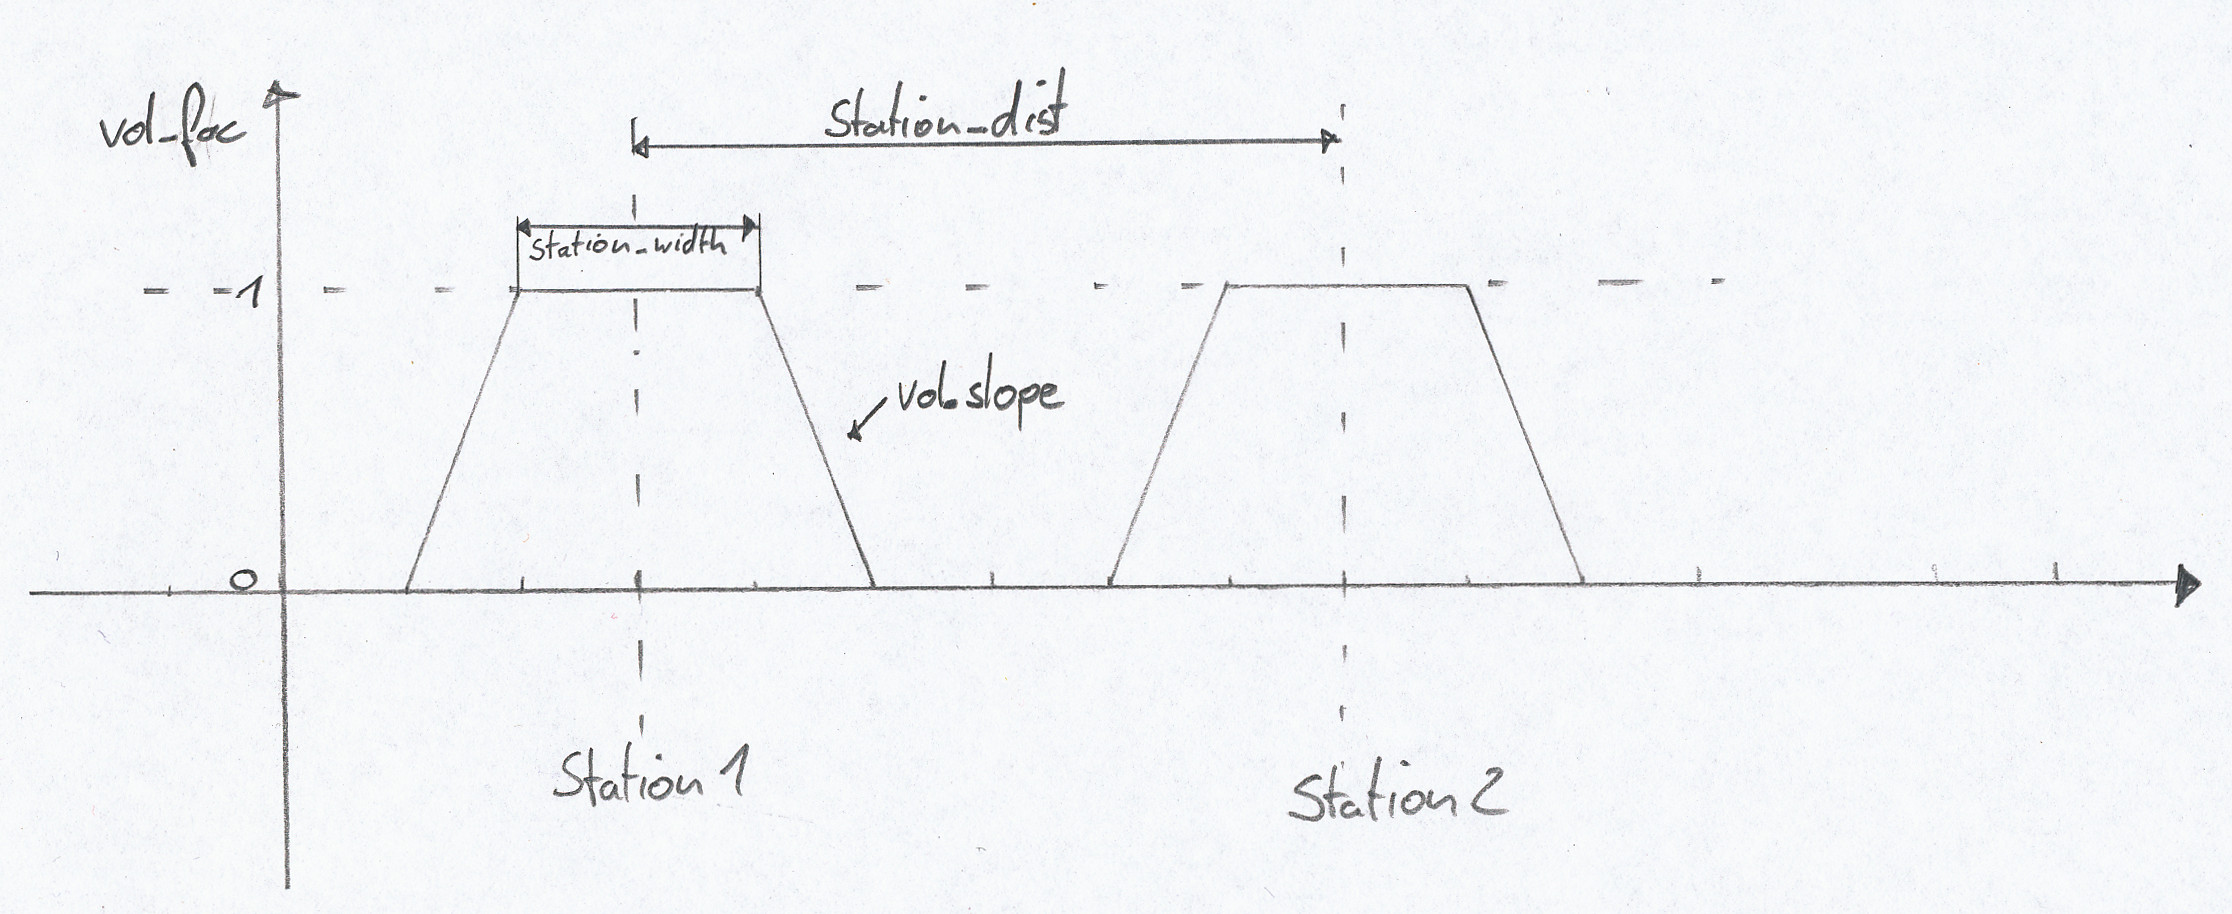 vol_fac
Station_dist
Station_width
1
vol.slope
0
Station 1
Station 2